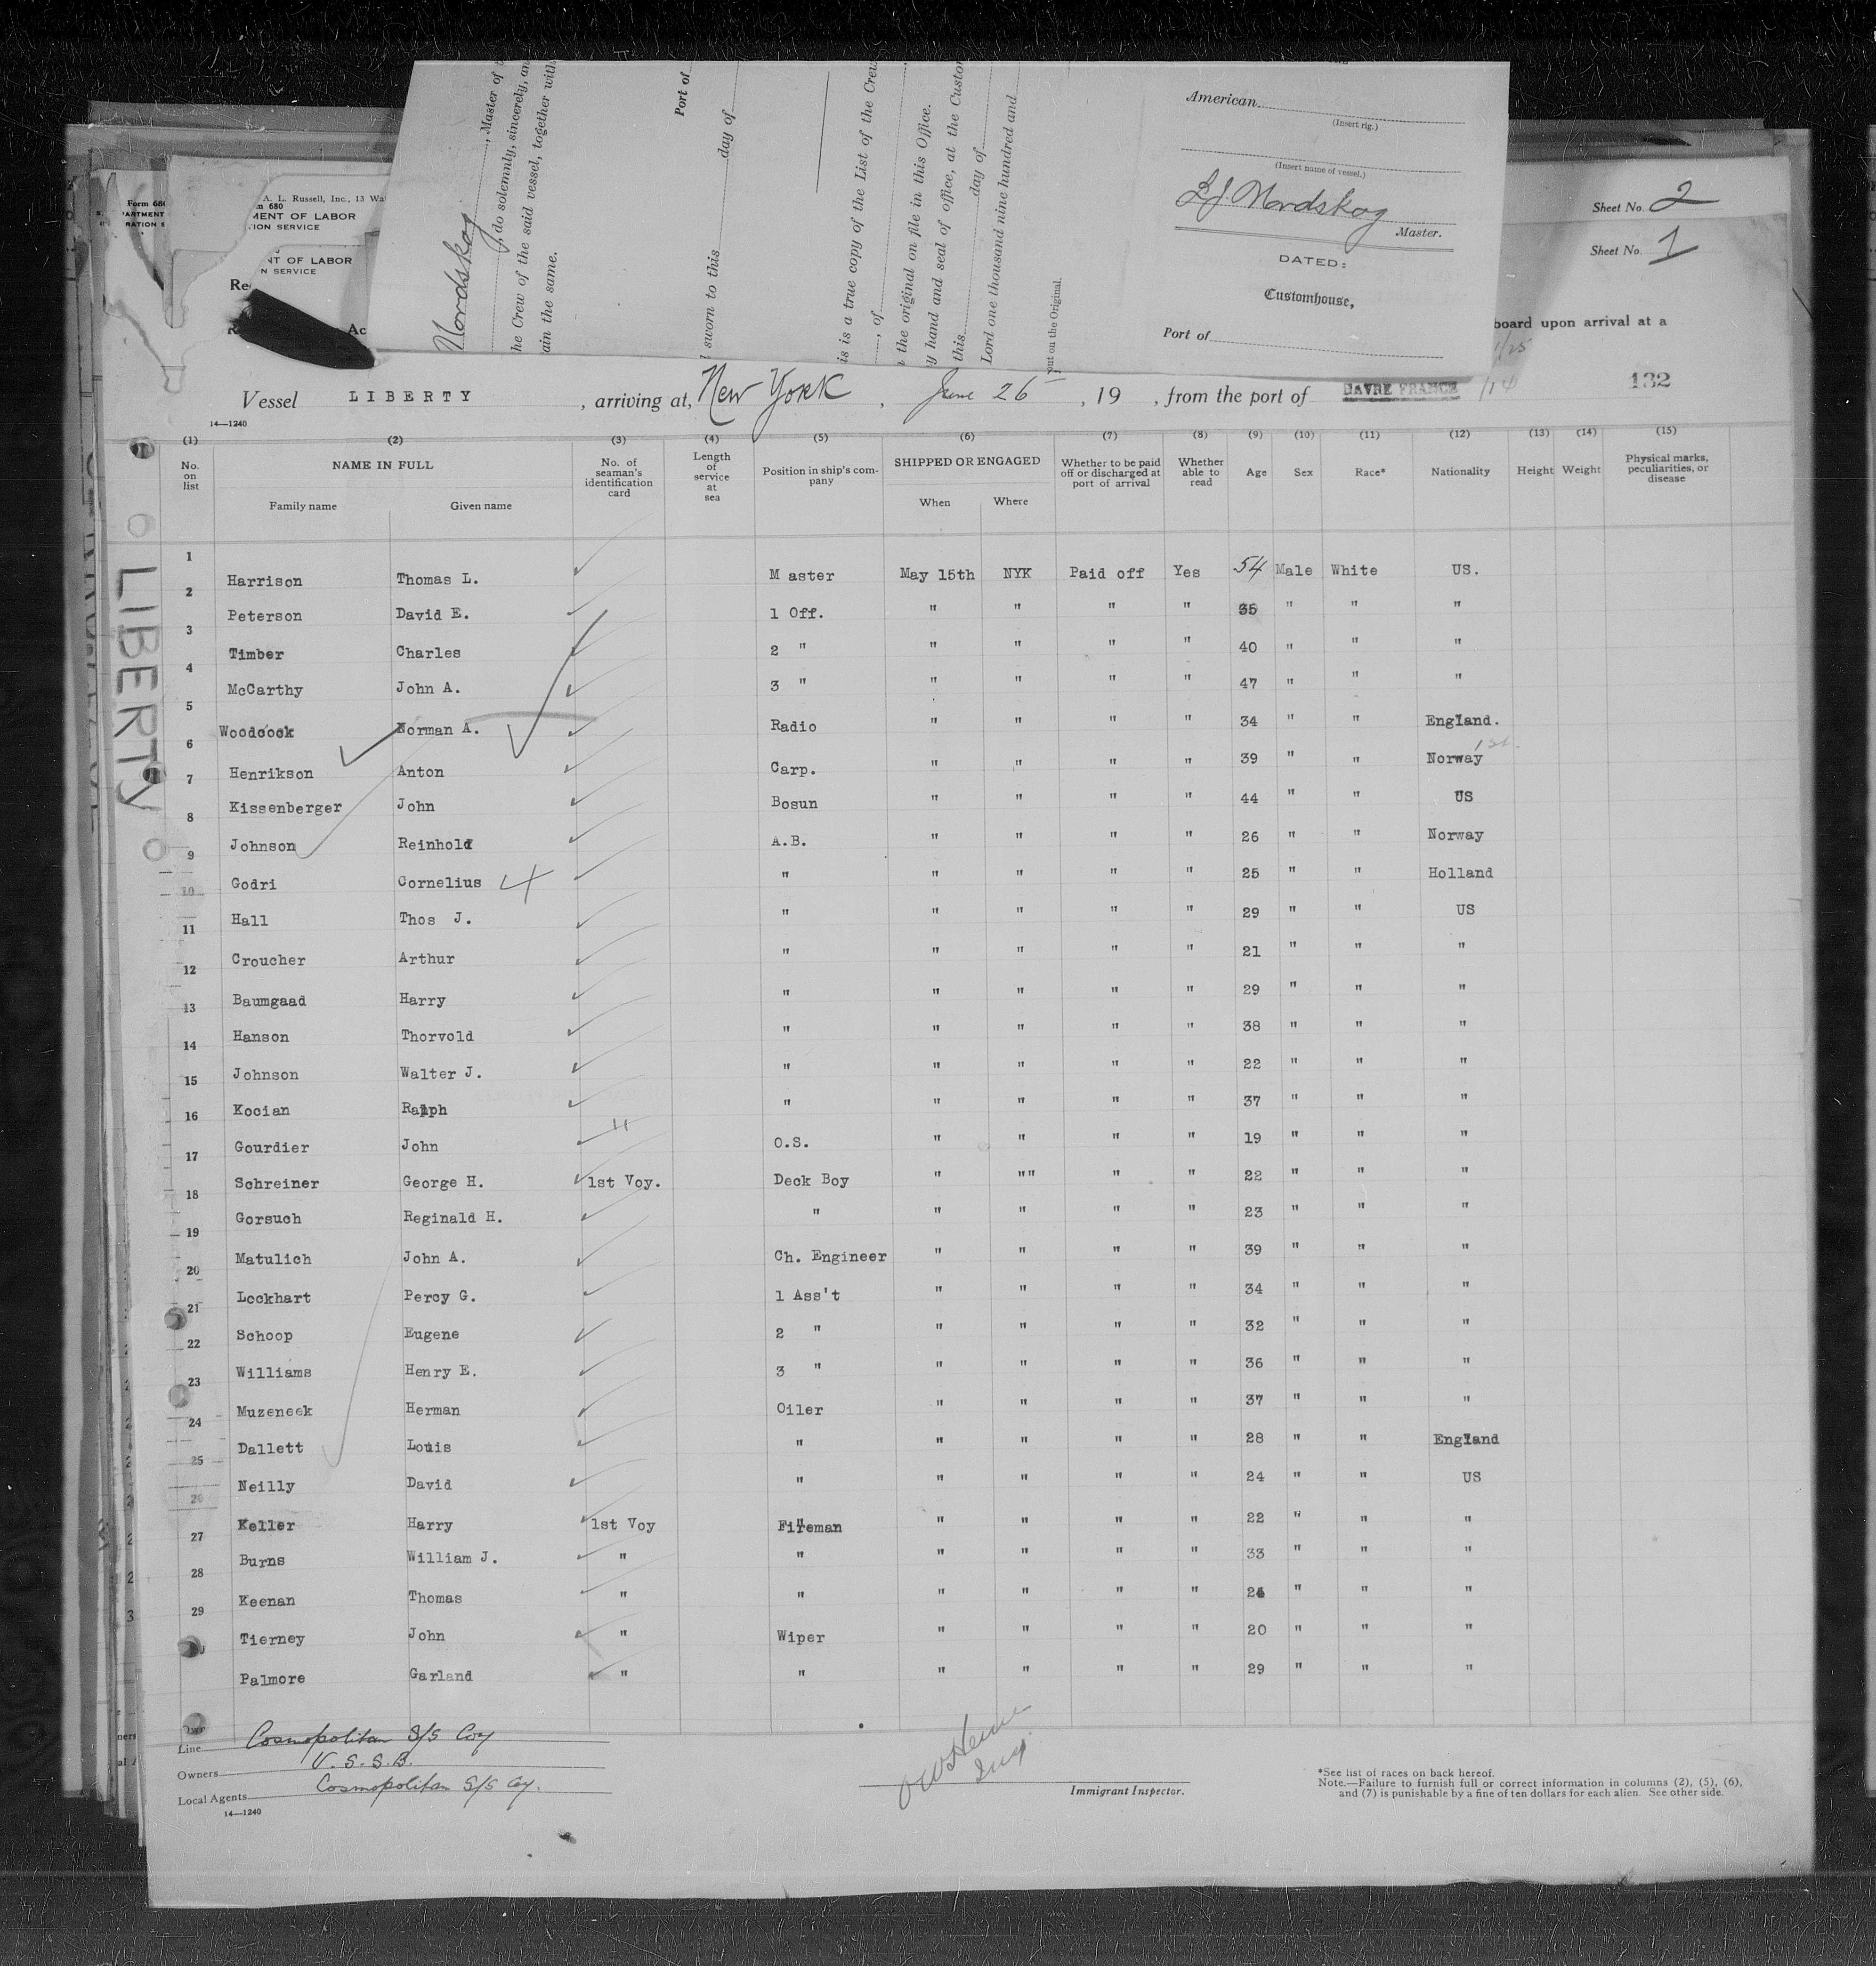 American
(Insert rig.)
(Insert name of vessel.)
Nordskog
Master.
DATED:
Customhouse,
Port of
Nordskog
, Master of
, do solemnly, sincerely, an
he Crew of the said vessel, together with
ain the same.
Port of
sworn to this day of
is is a true copy of the List of the Crew
, of
the original on file in this Office.
y hand and seal of office, at the Custo
this day of
Lord one thousand nine hundred and
out on the Original.
Form 680
A. L. Russell, Inc., 13 Wa
m 680
MENT OF LABOR
ION SERVICE
ARTMENT
RATION S
NT OF LABOR
N SERVICE
Sheet No. 2
Sheet No. 1
Re
Ac
board upon arrival at a
1/25
LIBERTY
Vessel LIBERTY, arriving at, New York, June 26, 19 , from the port of HAVRE FRANCE 1/14 132
14—1240
(1) (2) (3) (4) (5) (6) (7) (8) (9) (10) (11) (12) (13) (14) (15)
No. on list NAME IN FULL No. of seaman's identification card Length of service at sea Position in ship's company SHIPPED OR ENGAGED Whether to be paid off or discharged at port of arrival Whether able to read Age Sex Race* Nationality Height Weight Physical marks, peculiarities, or disease
Family name Given name When Where
1 Harrison Thomas L. M aster May 15th NYK Paid off Yes 54 Male White US.
2 Peterson David E. 1 Off. " " " " 35 " " "
3 Timber Charles 2 " " " " " 40 " " "
4 McCarthy John A. 3 " " " " " 47 " " "
5 Woodcock Norman A. Radio " " " " 34 " " England.
6 Henrikson Anton Carp. " " " " 39 " " Norway 1st.
7 Kissenberger John Bosun " " " " 44 " " US
8 Johnson Reinhold A.B. " " " " 26 " " Norway
9 Godri Cornelius " " " " " 25 " " Holland
10 Hall Thos J. " " " " " 29 " " US
11 Croucher Arthur " " " " " 21 " " "
12 Baumgaad Harry " " " " " 29 " " "
13 Hanson Thorvold " " " " " 38 " " "
14 Johnson Walter J. " " " " " 22 " " "
15 Kocian Ralph " " " " " 37 " " "
16 Gourdier John " O.S. " " " " 19 " " "
17 Schreiner George H. 1st Voy. Deck Boy " "" " " 22 " " "
18 Gorsuch Reginald H. " " " " " 23 " " "
19 Matulich John A. Ch. Engineer " " " " 39 " " "
20 Lockhart Percy G. 1 Ass't " " " " 34 " " "
21 Schoop Eugene 2 " " " " " 32 " " "
22 Williams Henry E. 3 " " " " " 36 " " "
23 Muzeneek Herman Oiler " " " " 37 " " "
24 Dallett Louis " " " " " 28 " " England
25 Neilly David " " " " " 24 " " US
26 Keller Harry 1st Voy Fireman " " " " 22 " " "
27 Burns William J. " " " " " " 33 " " "
28 Keenan Thomas " " " " " " " "
29 Tierney John " Wiper " " " " 20 " " "
Palmore Garland " " " " " " 29 " " "
Line Cosmopolitan S/S Coy
Owners U. S. S. B.
Local Agents Cosmopolitan S/S Coy.
14—1240
Immigrant Inspector.
*See list of races on back hereof.
Note.—Failure to furnish full or correct information in columns (2), (5), (6),
and (7) is punishable by a fine of ten dollars for each alien. See other side.